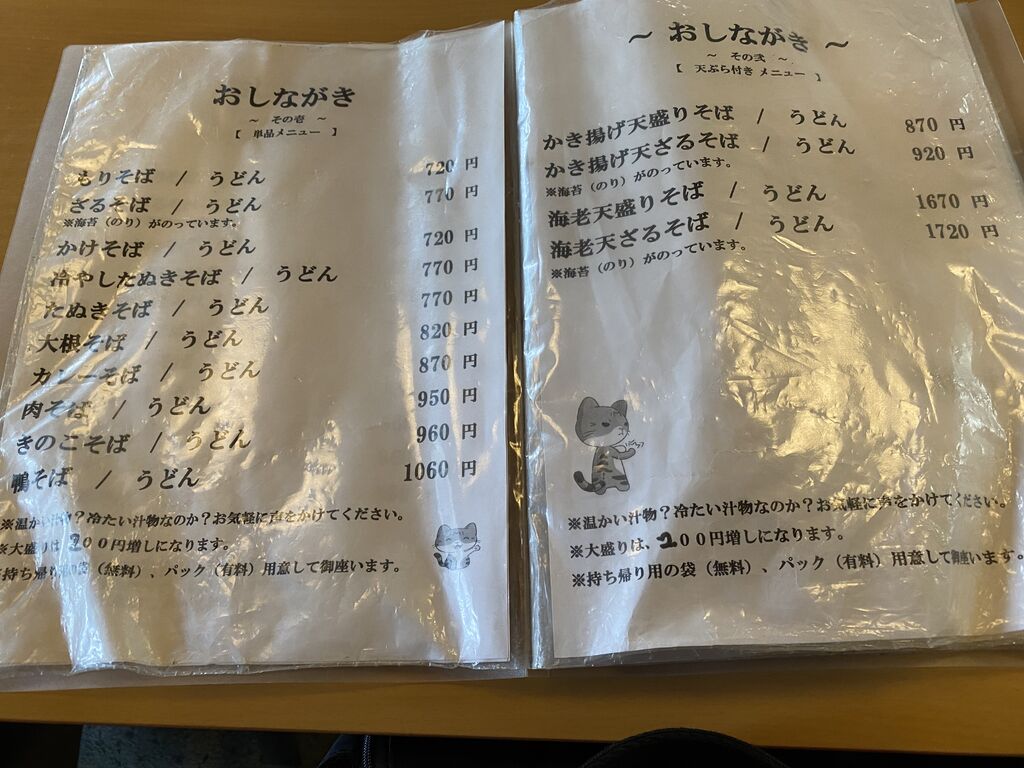 おしながき
～ その壱 ～
【 単品メニュー 】
もりそば / うどん 720 円
ざるそば / うどん 770 円
※海苔（のり）がのっています。
かけそば / うどん 720 円
冷やしたぬきそば / うどん 770 円
たぬきそば / うどん 770 円
大根そば / うどん 820 円
カレーそば / うどん 870 円
肉そば / うどん 950 円
きのこそば / うどん 960 円
鴨そば / うどん 1060 円
※温かい汁物？冷たい汁物なのか？お気軽に声をかけてください。
※大盛りは200円増しになります。
※持ち帰り用の袋（無料）、パック（有料）用意して御座います。
～ おしながき ～
～ その弐 ～
【 天ぷら付き メニュー 】
かき揚げ天盛りそば / うどん 870 円
かき揚げ天ざるそば / うどん 920 円
※海苔（のり）がのっています。
海老天盛りそば / うどん 1670 円
海老天ざるそば / うどん 1720 円
※海苔（のり）がのっています。
※温かい汁物？冷たい汁物なのか？お気軽に声をかけてください。
※大盛りは、200円増しになります。
※持ち帰り用の袋（無料）、パック（有料）用意して御座います。